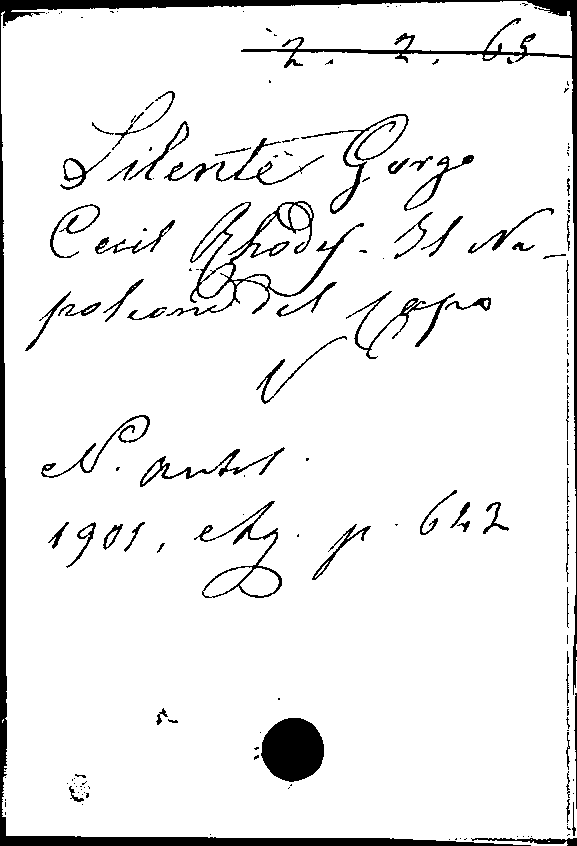 2. 2. 65
Silente Gurgo
Cecil Rhodes - Il Na-
poleone del Capo
V
N. antol.
1901, Ag. p. 622